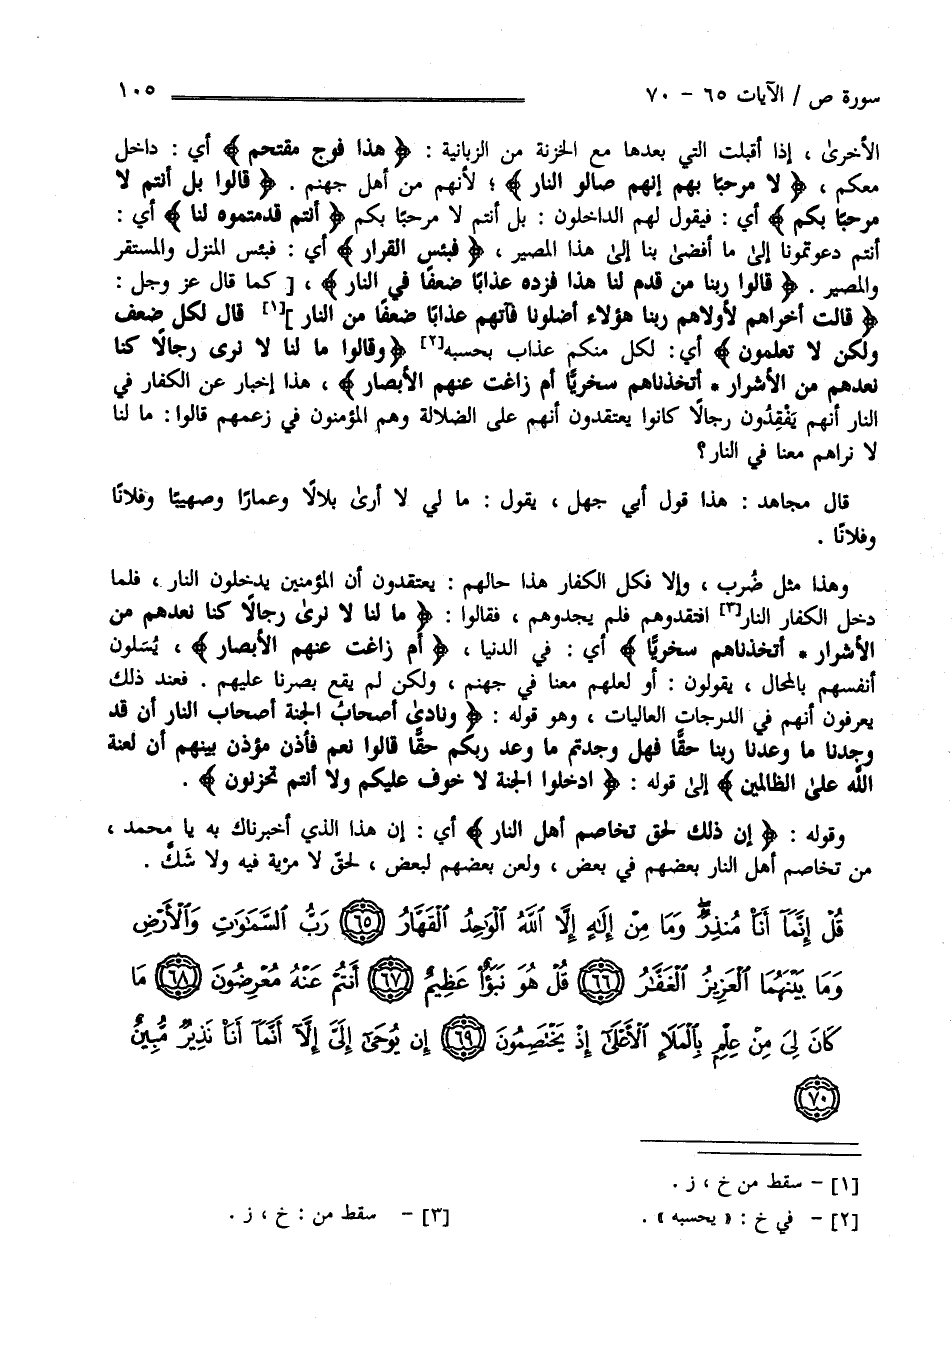 سورة ص / الآيات ٦٥ - ٧٠ ١٠٥
الأخرىٰ ، إذا أقبلت التي بعدها مع الخزنة من الزبانية : ﴿ هذا فوج مقتحم ﴾ أي : داخل
معكم ، ﴿ لا مرحبًا بهم إنهم صالو النار ﴾ ؛ لأنهم من أهل جهنم . ﴿ قالوا بل أنتم لا
مرحبًا بكم ﴾ أي : فيقول لهم الداخلون : بل أنتم لا مرحبًا بكم ﴿ أنتم قدمتموه لنا ﴾ أي :
أنتم دعوتمونا إلىٰ ما أفضىٰ بنا إلىٰ هذا المصير ، ﴿ فبئس القرار ﴾ أي : فبئس المنزل والمستقر
والمصير . ﴿ قالوا ربنا من قدم لنا هذا فزده عذابًا ضعفًا في النار ﴾ ، [ كما قال عز وجل :
﴿ قالت أخراهم لأولاهم ربنا هؤلاء أضلونا فآتهم عذابًا ضعفًا من النار ][١] قال لكل ضعف
ولكن لا تعلمون ﴾ أي: لكل منكم عذاب بحسبه[٢] ﴿ وقالوا ما لنا لا نرى رجالًا كنا
نعدهم من الأشرار * أتخذناهم سخريًّا أم زاغت عنهم الأبصار ﴾ ، هذا إخبار عن الكفار في
النار أنهم يَفْقِدُون رجالًا كانوا يعتقدون أنهم على الضلالة وهم المؤمنون في زعمهم قالوا: ما لنا
لا نراهم معنا في النار؟
قال مجاهد : هذا قول أبي جهل ، يقول : ما لي لا أرىٰ بلالًا وعمارًا وصهيبًا وفلانًا
وفلانًا .
وهذا مثل ضُرب ، وإلا فكل الكفار هذا حالهم : يعتقدون أن المؤمنين يدخلون النار ، فلما
دخل الكفار النار[٣] افتقدوهم فلم يجدوهم ، فقالوا : ﴿ ما لنا لا نرىٰ رجالًا كنا نعدهم من
الأشرار * أتخذناهم سخريًّا ﴾ أي : في الدنيا ، ﴿ أم زاغت عنهم الأبصار ﴾ ، يُسَلون
أنفسهم بالمحال ، يقولون : أو لعلهم معنا في جهنم ، ولكن لم يقع بصرنا عليهم . فعند ذلك
يعرفون أنهم في الدرجات العاليات ، وهو قوله : ﴿ ونادىٰ أصحابُ الجنة أصحاب النار أن قد
وجدنا ما وعدنا ربنا حقًّا فهل وجدتم ما وعد ربكم حقًّا قالوا نعم فأذن مؤذن بينهم أن لعنة
الله علىٰ الظالمين ﴾ إلىٰ قوله : ﴿ ادخلوا الجنة لا خوف عليكم ولا أنتم تحزنون ﴾ .
وقوله : ﴿ إن ذلك لحق تخاصم أهل النار ﴾ أي : إن هذا الذي أخبرناك به يا محمد ،
من تخاصم أهل النار بعضهم في بعض ، ولعن بعضهم لبعض ، لحقّ لا مرية فيه ولا شَكَّ .
قُلْ إِنَّمَآ أَنَا۠ مُنذِرٌۖ وَمَا مِنْ إِلَٰهٍ إِلَّا ٱللَّهُ ٱلْوَٰحِدُ ٱلْقَهَّارُ ٦٥ رَبُّ ٱلسَّمَٰوَٰتِ وَٱلْأَرْضِ
وَمَا بَيْنَهُمَا ٱلْعَزِيزُ ٱلْغَفَّٰرُ ٦٦ قُلْ هُوَ نَبَؤٌا۟ عَظِيمٌ ٦٧ أَنتُمْ عَنْهُ مُعْرِضُونَ ٦٨ مَا
كَانَ لِىَ مِنْ عِلْمٍۭ بِٱلْمَلَإِ ٱلْأَعْلَىٰٓ إِذْ يَخْتَصِمُونَ ٦٩ إِن يُوحَىٰٓ إِلَىَّ إِلَّآ أَنَّمَآ أَنَا۠ نَذِيرٌ مُّبِينٌ
٧٠
[١] - سقط من خ ، ز .
[٢] - في خ : « يحسبه » . [٣] - سقط من : خ ، ز .